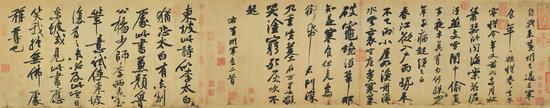 自我來黃州已過三寒
食年年欲惜春春去不
容惜今年又苦雨兩月秋
蕭瑟臥聞海棠花泥
污燕支雪闇中偷負
去夜半真有力何殊少
年子病起頭已白
春江欲入戶雨勢來
不已小屋如漁舟濛濛
水雲裏空庖煮寒菜
破竈燒濕葦那
知是寒食但見烏
銜帋君門深
九重墳墓在万里也擬
哭塗窮死灰吹不
起
右黃州寒食二首
東坡此詩似李太白
猶恐太白有未到
處此書兼顏魯
公楊少師李西臺
筆意試使東坡
復為之未必及此它
日東坡或見此書應
笑我於無佛處
稱尊也